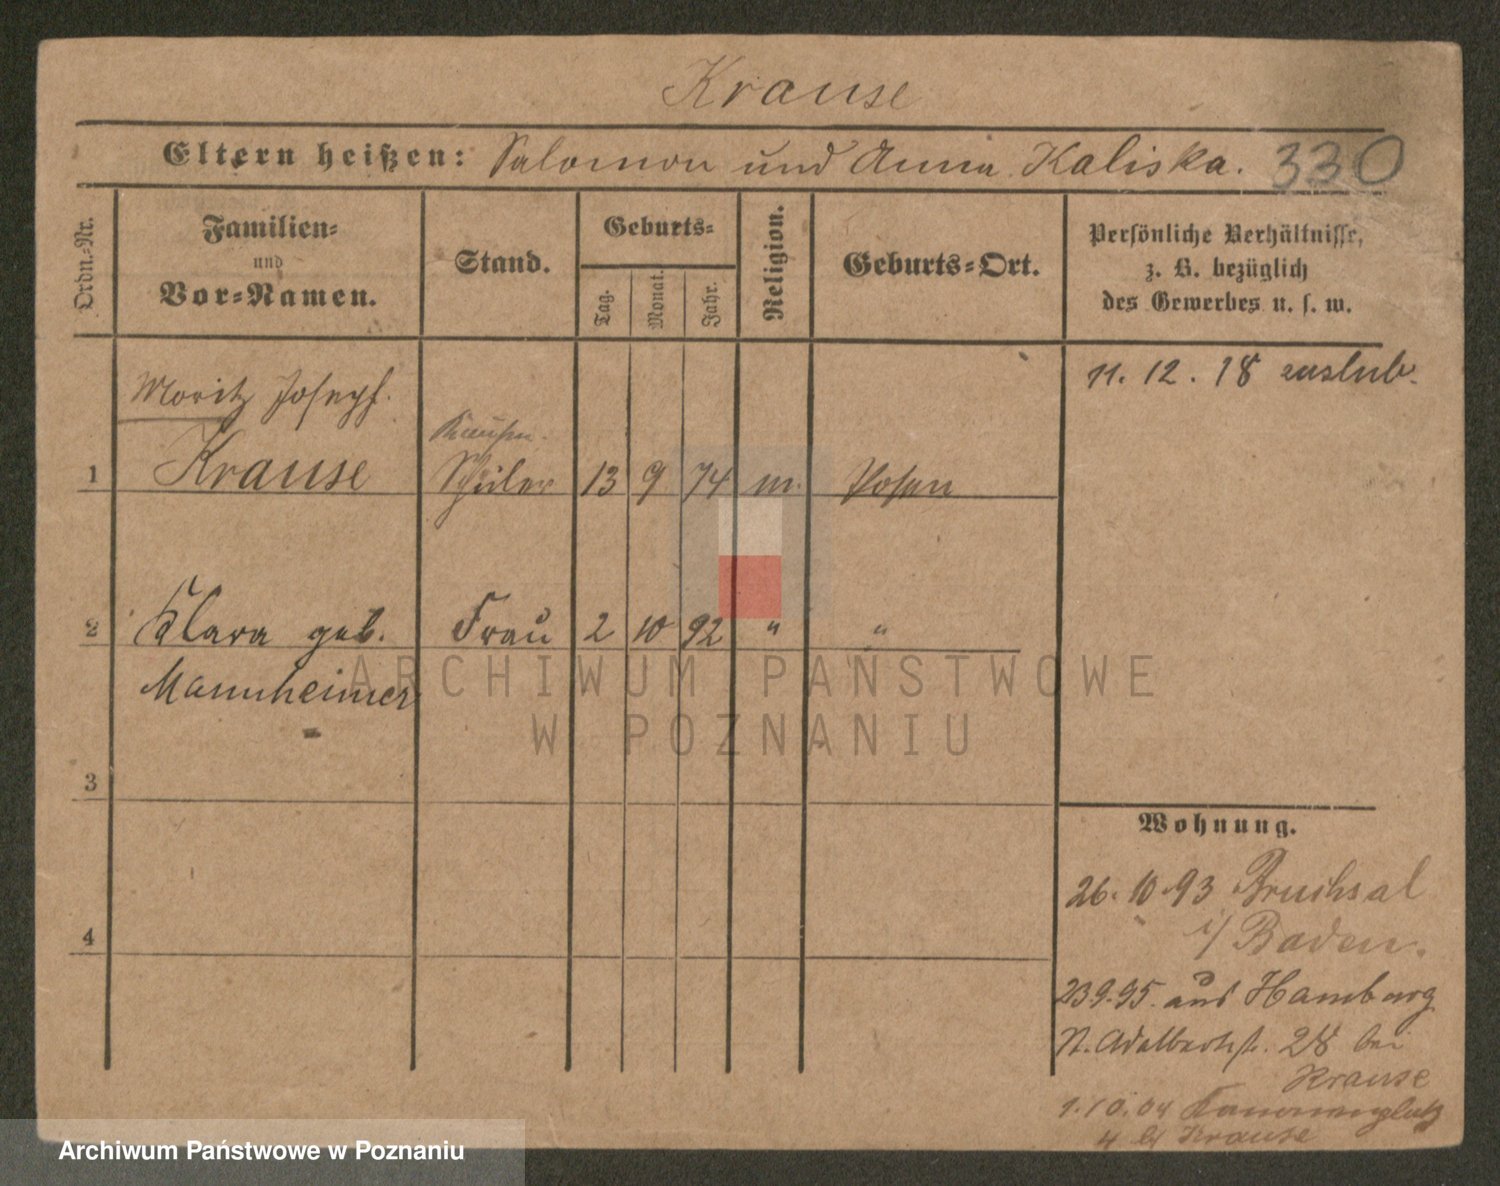 Krause
Eltern heißen: Salomon und Anna Kaliska. 330
Ordn.-Nr.
Familien-
und
Vor-Namen.
Stand.
Geburts-
Tag.
Monat.
Jahr.
Religion.
Geburts-Ort.
Persönliche Verhältnisse,
z. B. bezüglich
des Gewerbes u. s. w.
11. 12. 18
Moritz Joseph.
Kaufm.
1 Krause Schüler 13 9 74 m. Posen
2 Klara geb. Frau 2 10 92 " "
Mannheimer
3
4
Wohnung.
26. 10. 93 Bruchsal
i/ Baden.
23.9.95. aus Hamburg
St. Adalbertst. 28 bei
Krause
1. 10. 04 Kanonenplatz
4 b/ Krause
ARCHIWUM PAŃSTWOWE
W POZNANIU
Archiwum Państwowe w Poznaniu